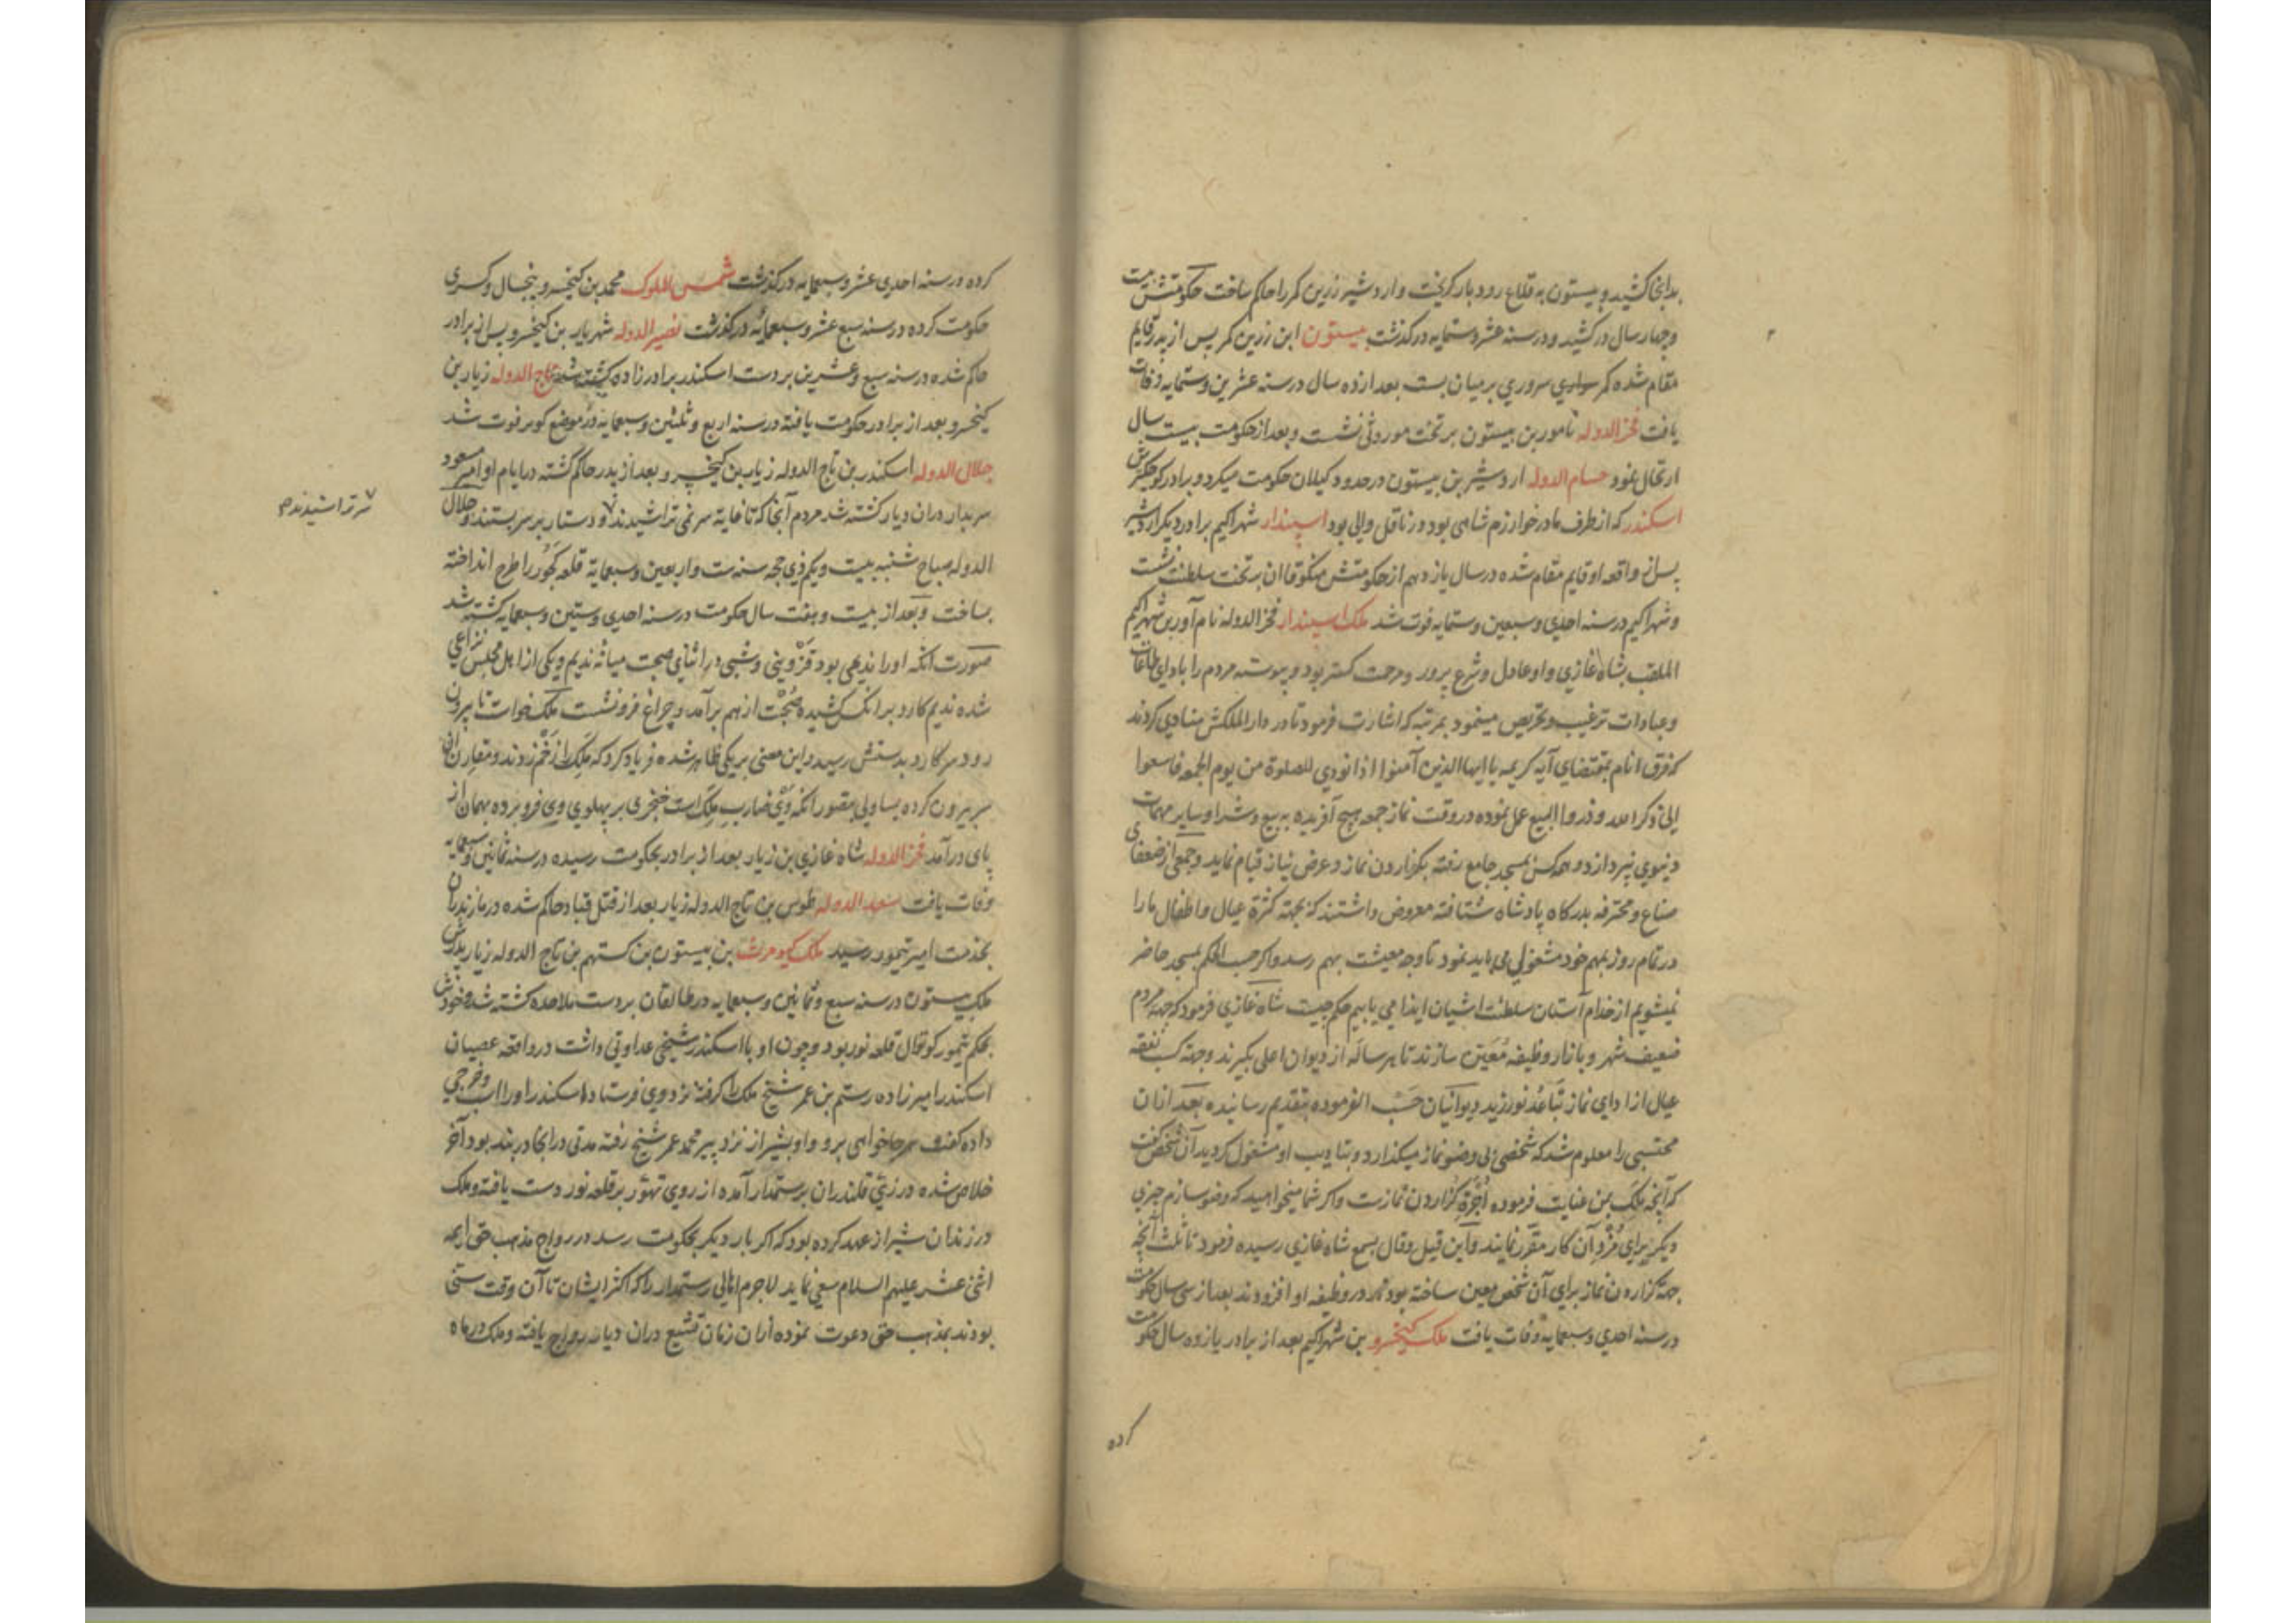 بدانجا کشید و بیستون به قلاع رودبار کریخت و اردشیر زرین کمر را حاکم ساخت حکومتش بیست
و چهار سال در کشید و در سنه عشر و ستمایه درکذشت بیستون ابن زرین کمر پس از پدر قایم
مقام شده کمر سروری بر میان بست بعد از ده سال در سنه عشرین و ستمایه وفات
یافت فخر الدوله نامور بن بیستون بر تخت موروثی نشست و بعد از حکومت بیست سال
ارتحال نمود حسام الدوله اردشیر بن بیستون در حدود کیلان حکومت میکرد و برادر کوچکترش
اسکندر که از طرف مادر خوارزم شاهی بود در ناقل والی بود اسپندار شهراکیم برادر دیکر اردشیر
پس از واقعه او قایم مقام شده در سال یازدهم از حکومتش منکوقاان بر تخت سلطنت نشست
و شهراکیم در سنه احدی و سبعین و ستمایه فوت شد ملک اسپندار فخر الدوله نام آور بن شهراکیم
الملقب بشاه غازی و او عادل و شرع پرور و مرحمت کستر بود و پیوسته مردم را بادای طاعات
و عبادات ترغیب و تحریص مینمود بمرتبه که اشارت فرمود تا در دار الملکش منادی کردند
که فرق انام بمقتضای آیه کریمه یا ایها الذین آمنوا اذا نودی للصلوة من یوم الجمعه فاسعوا
الی ذکر الله و ذروا البیع عمل نموده در وقت نماز جمعه هیچ آفریده به بیع و شرا و سایر مهمات
دنیوی نپردازد و همه کس بمسجد جامع رفته بکزاردن نماز و عرض نیاز قیام نماید و جمعی از ضعفای
صناع و محترفه بدرکاه پادشاه شتافته معروض داشتند که بجهته کثرة عیال و اطفال ما را
در تمام روز بمهم خود مشغولی می باید نمود تا وجه معیشت بهم رسد و اکر حسب الحکم بمسجد حاضر
نمیشویم از خدام آستان سلطنت اشیان ایذا می یابیم حکم چیست شاه غازی فرمود که جهته مردم
ضعیف شهر و بازار وظیفه معین سازند تا هر ساله از دیوان اعلی بکیرند و جهته کسب نفقه
عیال از ادای نماز تباعد نورزید دیوانیان حسب الفرموده بتقدیم رسانیده بعد ازان
محتسبی را معلوم شد که شخصی بی وضو نماز میکذارد و بتادیب او مشغول کردید آن شخص کفت
که آنچه ملک بمن عنایت فرموده اجرة کزاردن نمازست و اکر شما میخواهید که وضو سازم چیزی
دیکر برای مزد آن کار مقرر نمایند و این قیل و قال بسمع شاه غازی رسیده فرمود تا ثلث آنچه
جهته کزاردن نماز برای آن شخص معین ساخته بودند در وظیفه او افزودند بعد از سی سال حکومت
در سنه احدی و سبعمایه وفات یافت ملک کیخسرو بن شهراکیم بعد از برادر یازده سال حکومت
کرده
کرده در سنه احدی عشر و سبعمایه درکذشت شمس الملوک محمد بن کیخسرو پنجسال و کسری
حکومت کرده در سنه سبع عشر و سبعمائه درکذشت نصیر الدوله شهریار بن کیخسرو پس از برادر
حاکم شده در سنه سبع و عشرین بر دست اسکندر برادرزاده کشته شد تاج الدوله زیار بن
کیخسرو بعد از برادر حکومت یافته در سنه اربع و ثلثین و سبعمایه در موضع کویر فوت شد
جلال الدوله اسکندر بن تاج الدوله زیار بن کیخسرو بعد از پدر حاکم کشته در ایام او امیر مسعود
سربدار دران دیار کشته شد مردم آنجا که تا غایة سر نمی تراشیدند و دستار بر سر بستند و جلال
سر تراشیدند م
الدوله صباح شنبه بیست و یکم ذی حجه سنه ست و اربعین و سبعمایة قلعه کجور را طرح انداخته
بساخت و بعد از بیست و هفت سال حکومت در سنه احدی و ستین و سبعمایه کشته شد
صورت انکه او را ندیمی بود قزوینی و شبی در اثنای صحبت میانه ندیم و یکی از اهل مجلس نزاعی
شده ندیم کارد بر انکس کشیده صحبت از هم برآمد و چراغ فرو نشست ملک خواست تا بیرون
رود سر کارد بدستش رسید و این معنی بر یکی ظاهر شده فریاد کرد که ملک را زخم زدند و مقارن آن
سر بیرون کرده یساولی بتصور انکه وی ضارب ملک است خنجری بر پهلوی وی فرو برده بهمان از
پای درآمد فخر الدوله شاه غازی بن زیار بعد از برادر بحکومت رسیده در سنه ثمانین و سبعمایه
وفات یافت سعد الدوله طوس بن تاج الدوله زیار بعد از قتل قباد حاکم شده در مازندران
بخدمت امیر تیمور رسید ملک کیومرث بن بیستون بن کستهم بن تاج الدوله زیار پدرش
ملک بیستون در سنه سبع و ثمانین و سبعمایه در طالقان بر دست ملاحده کشته شد و خودش
بحکم تیمور کوتوال قلعه نور بود و چون او با اسکندر شیخی عداوتی داشت در واقعه عصیان
اسکندر امیرزاده رستم بن عمر شیخ ملک را کرفته نزد وی فرستاد اسکندر او را اسب و خرجی
داده کفت هر جا خواهی برو و او بشیراز نزد پیر محمد عمر شیخ رفته مدتی در انجا در بند بود آخر
خلاص شده در زی قلندران برستمدار آمده از روی تهور بر قلعه نور دست یافته و ملک
در زندان شیراز عهد کرده بود که اکر بار دیکر بحکومت رسد در رواج مذهب حق ایمه
اثنی عشر علیهم السلام سعی نماید لاجرم اهالی رستمدار را که اکثر ایشان تا آن وقت سنی
بودند بمذهب حق دعوت نموده ازان زمان تشیع دران دیار رواج یافته و ملک در ماه